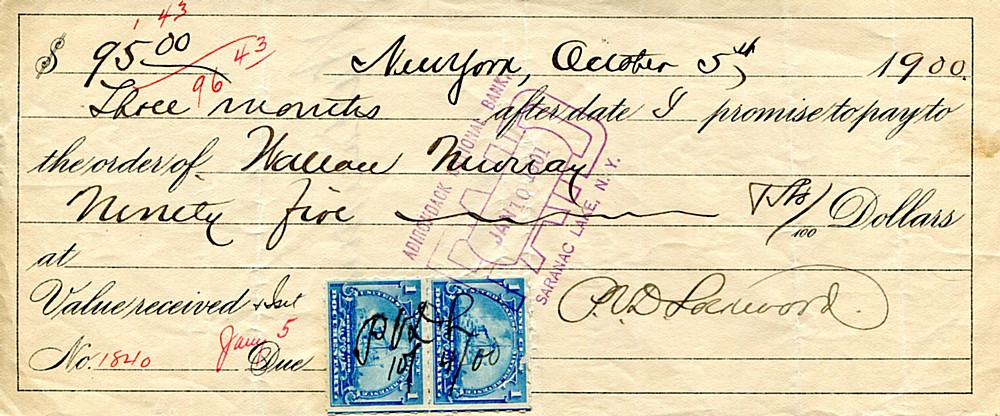 1 43
$ 95 00 96 43 New York, October 5th, 1900.
Three months after date I promise to pay to
the order of Wallace Murray
Ninety five /100 Dollars
at
Value received & Int
No. 1840 Jany 5 Due
P.V.D. Lockwood
ADIRONDACK NATIONAL BANK,
PAID
JAN 10 1901
SARANAC LAKE, N. Y.
1 1
P.V.D.L
10/4/00
1 1 1 1